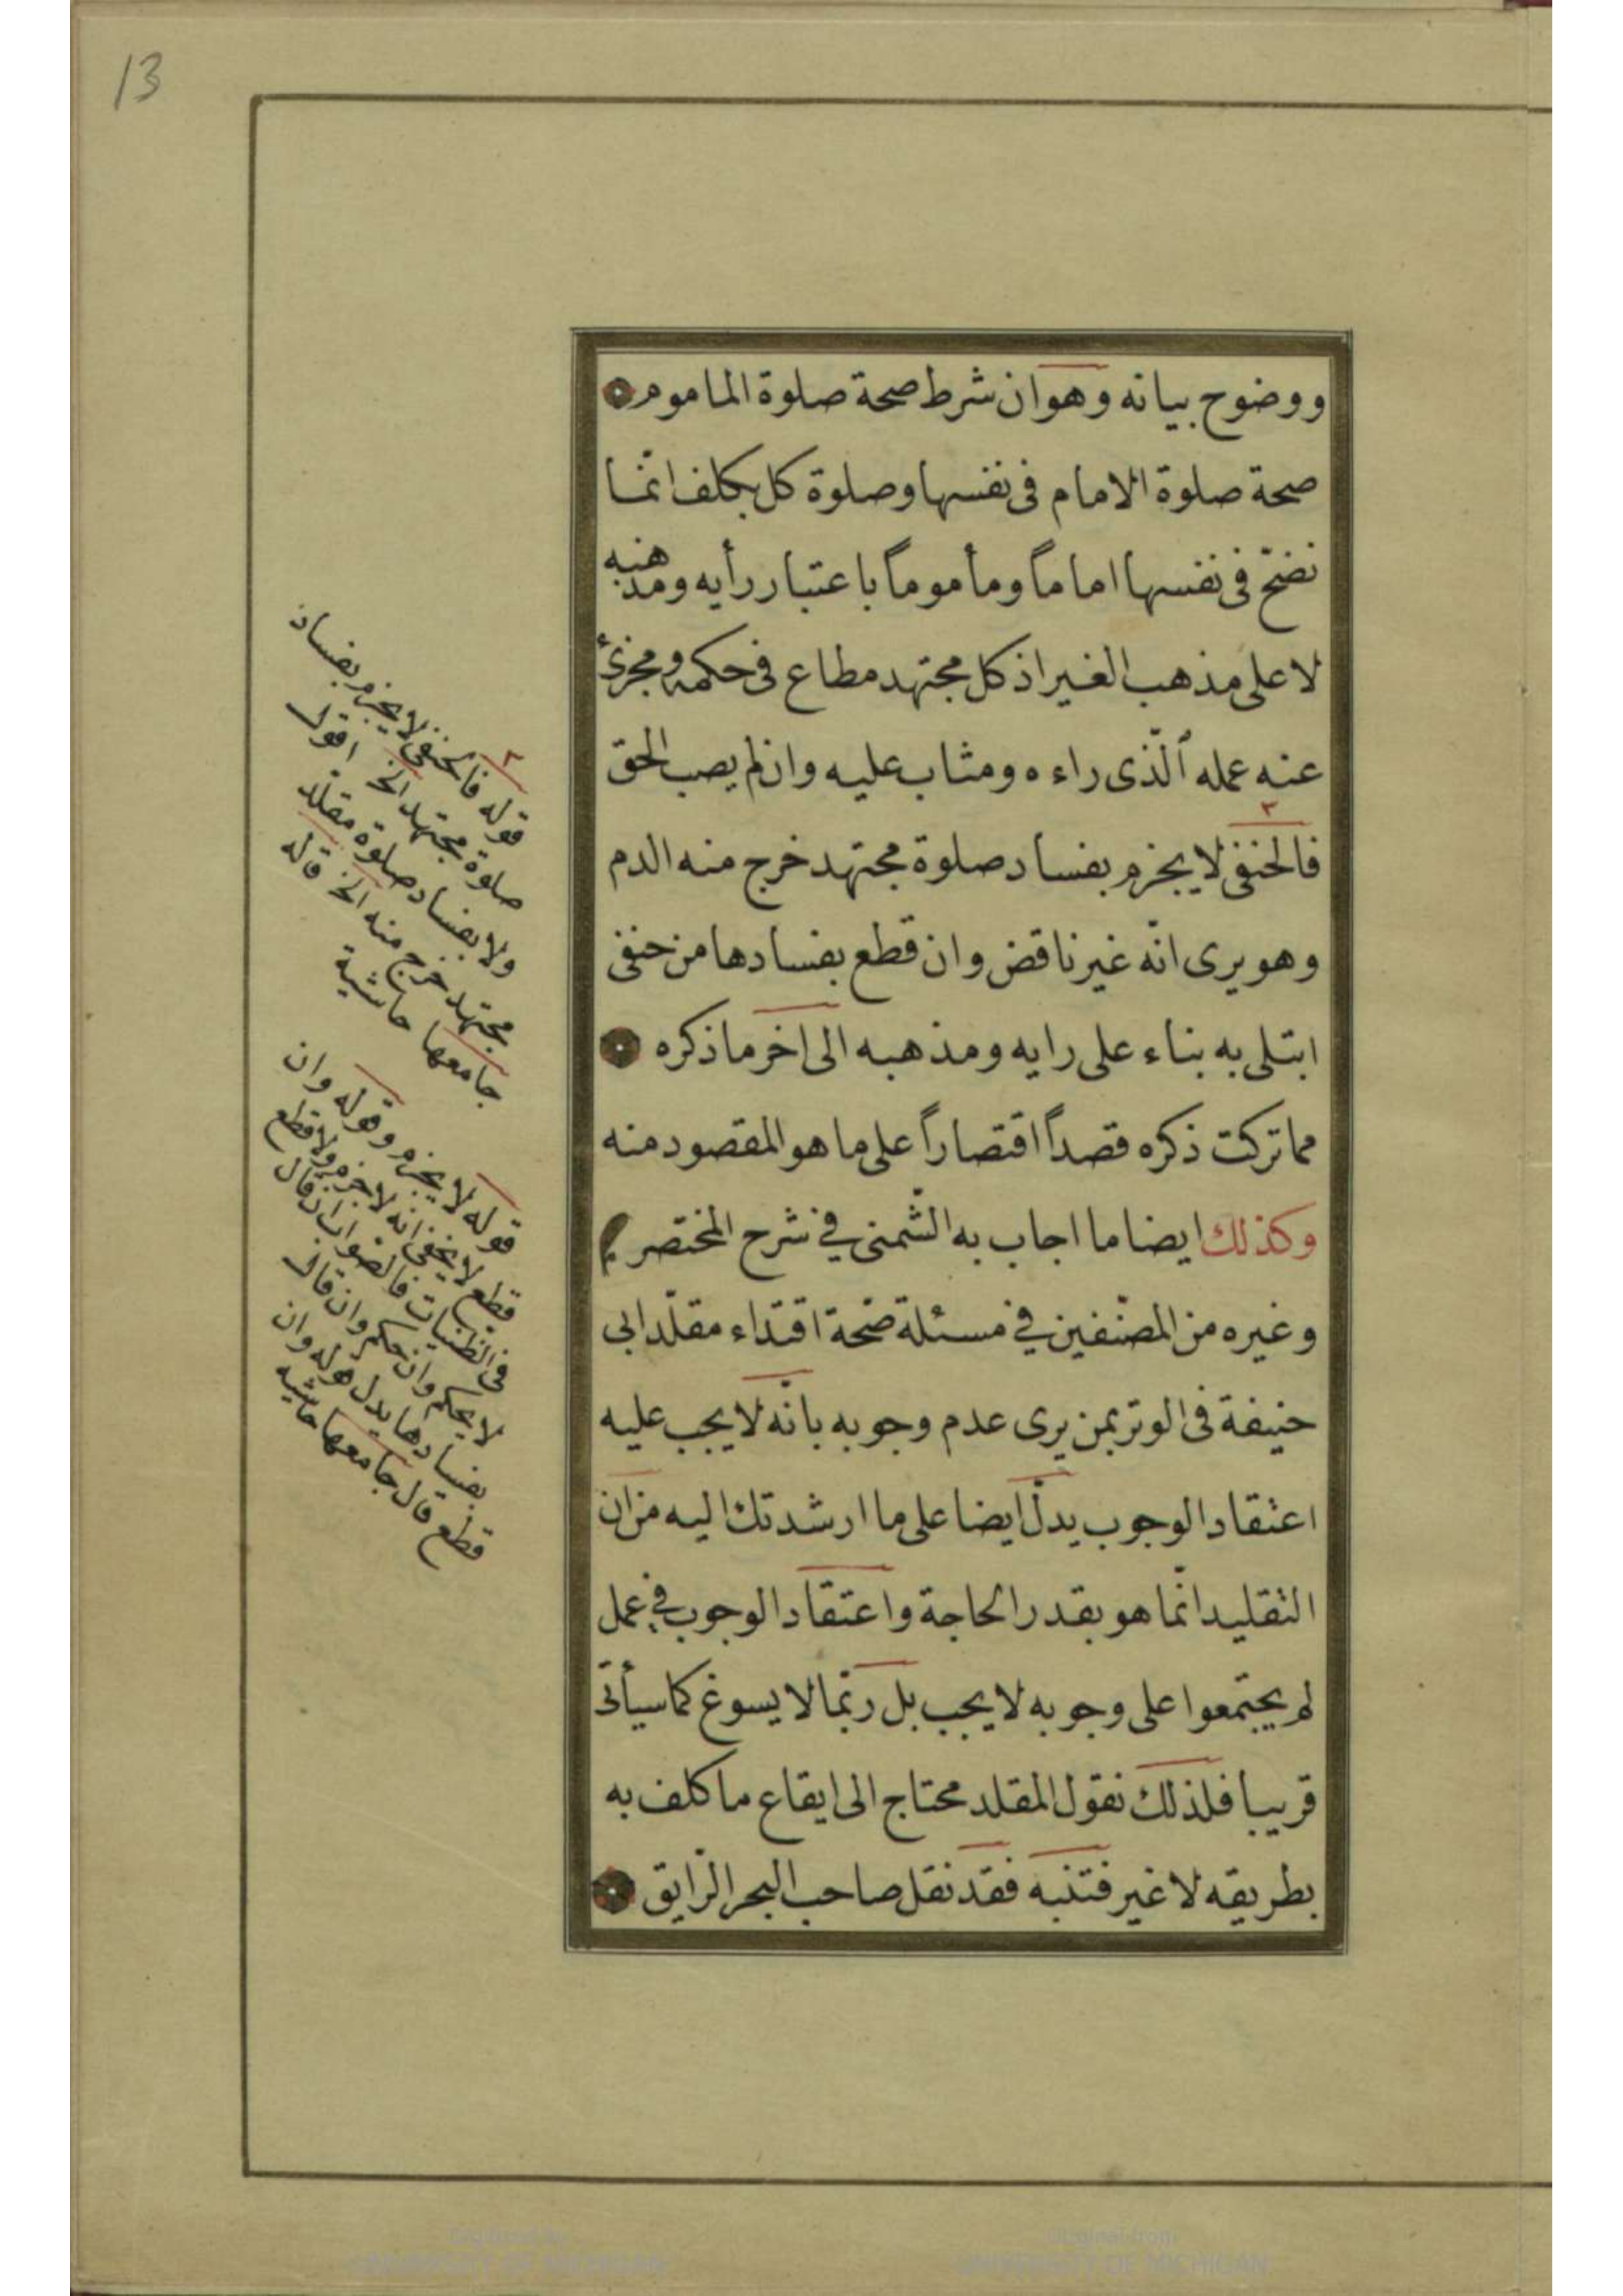 13
ووضوح بيانه وهو ان شرط صحة صلوة الماموم
صحة صلوة الامام فى نفسها وصلوة كل مكلف انّما
تصحّ فى نفسها اماماً ومأموماً باعتبار رأيه ومذهبه
لا على مذهب الغير اذ كل مجتهد مطاع فى حكمه ومجزئ
عنه عمله الّذى راءه ومثاب عليه وان لم يصب الحق
فالحنفى لا يجزم بفساد صلوة مجتهد خرج منه الدم
وهو يرى انّه غير ناقض وان قطع بفسادها من حنفى
ابتلى به بناء على رايه ومذهبه الى اخر ما ذكره
مما تركت ذكره قصداً اقتصاراً على ما هو المقصود منه
وكذلك ايضا ما اجاب به الشّمنى فى شرح المختصر
وغيره من المصنّفين فى مسئلة صحّة اقتداء مقلّد ابى
حنيفة فى الوتر بمن يرى عدم وجوبه بانّه لا يجب عليه
اعتقاد الوجوب يدلّ ايضا على ما ارشدتك اليه من ان
التقليد انّما هو بقدر الحاجة واعتقاد الوجوب فى عمل
لم يجتمعوا على وجوبه لا يجب بل ربّما لا يسوغ كما سيأتى
قريبا فلذلك نقول المقلد محتاج الى ايقاع ما كلف به
بطريقه لا غير فتنبه فقد نقل صاحب البحر الرّايق
٣
٣
قوله فالحنفى لا يجزم بفساد
صلوة مجتهد الخ اقول
ولا بفساد صلوة مقلد
مجتهد خرج منه الخ قاله
جامعها حاشية
قوله لا يجزم وقوله وان
قطع لا يخفى انه لا جزم ولا قطع
فى الظنيات فالصواب ان قال
لا يحكم وان حكم وان قال
بفسادها بدل قوله وان
قطع قال جامعها حاشيه